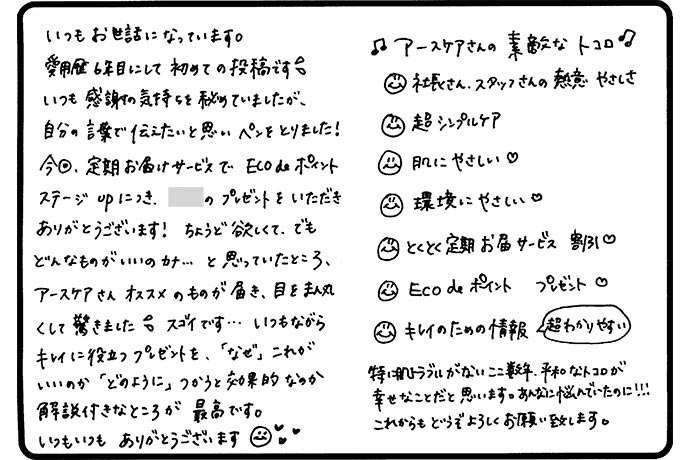 いつもお世話になっています。
愛用歴6年目にして初めての投稿です
いつも感謝の気持ちを秘めていましたが、
自分の言葉で伝えたいと思いペンをとりました!
今回、定期お届けサービスでEco de ポイント
ステージupにつき、のプレゼントをいただき
ありがとうございます! ちょうど欲しくて、でも
どんなものがいいのカナ…と思っていたところ、
アースケアさんオススメのものが届き、目をまん丸
くして驚きました スゴイです… いつもながら
キレイに役立つプレゼントを、「なぜ」これが
いいのか「どのように」つかうと効果的なのか
解説付きなところが最高です。
いつもいつも ありがとうございます
♫ アースケアさんの素敵なトコロ ♫
社長さん、スタッフさんの熱意 やさしさ
超シンプルケア
肌にやさしい♡
環境にやさしい♡
とくとく定期お届サービス 割引♡
Eco de ポイント プレゼント♡
キレイのための情報 超わかりやすい
特に肌トラブルがないここ数年、平和なトコロが
幸せなことだと思います。あんなに悩んでいたのに!!!
これからもどうぞよろしくお願い致します。